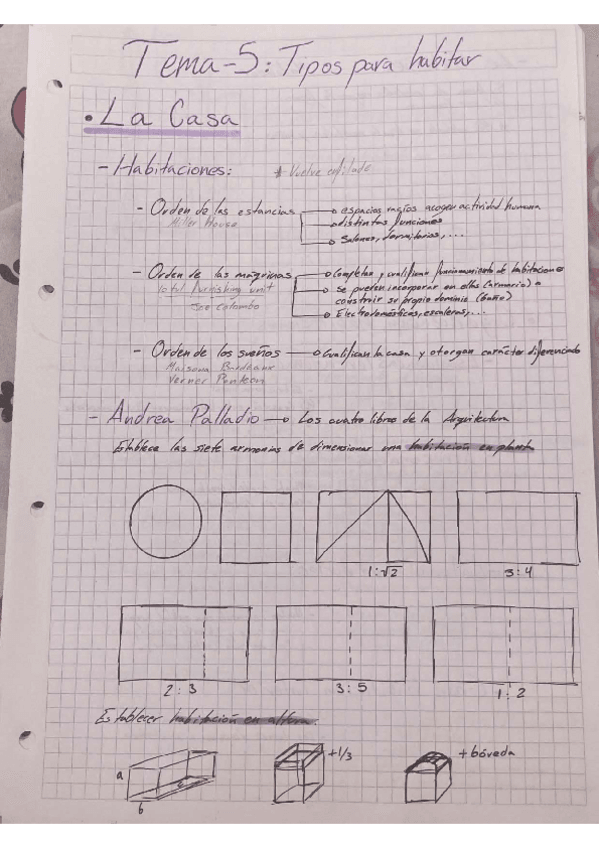 Tema-5: Tipos para habitar
• La Casa
- Habitaciones: * Vuelve enfilade
- Orden de las estancias → espacios vacíos acoger actividad humana
Miller House → distintas funciones
→ Salones, dormitorios, ...
- Orden de las máquinas → Completan y cualifican funcionamiento de habitaciones
Total furnishing unit → Se pueden incorporar en ellas (armario) o
Joe Colombo construir su propio dominio (baño)
→ Electrodomésticos, escaleras, ...
- Orden de los sueños → Cualifican la casa y otorgan carácter diferenciado
Maison Burdeaux
Verner Panteon
- Andrea Palladio → Los cuatro libros de la Arquitectura
Establece las siete armonías de dimensionar una habitación en planta
1:√2
3:4
2:3
3:5
1:2
Establecer habitación en altura.
a
b
+1/3
+ bóveda